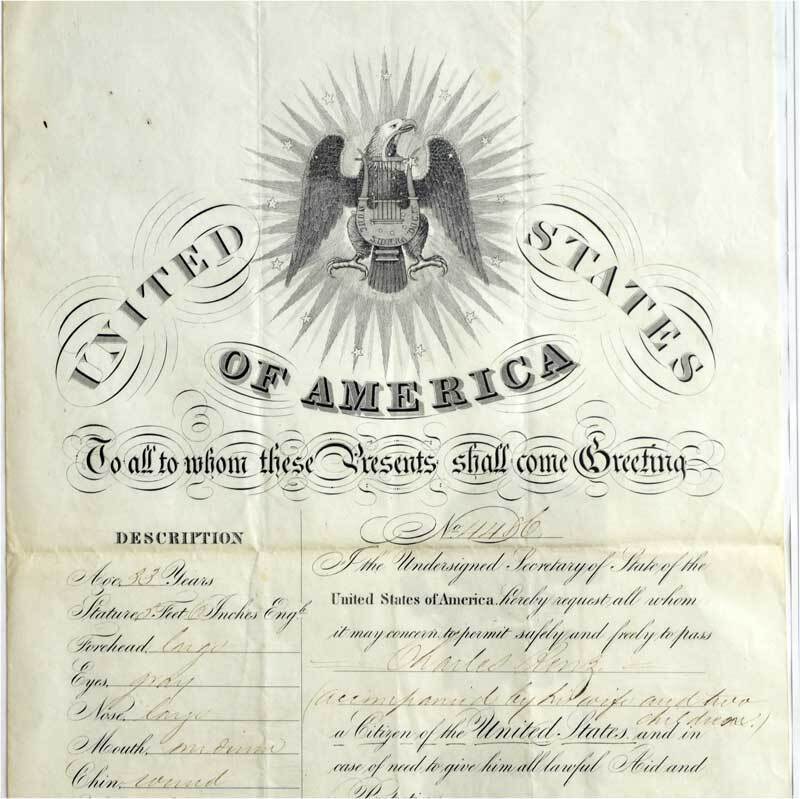 NUNC SIDERA DUCIT
UNITED STATES
OF AMERICA
To all to whom these Presents shall come Greeting
DESCRIPTION
Age, 33 Years
Stature, 5 Feet 6 Inches Eng.h
Forehead, large
Eyes, gray
Nose, large
Mouth, medium
Chin, round
No
I the Undersigned Secretary of State of the
United States of America, hereby request all whom
it may concern to permit safely and freely to pass
Charles
(accompanied by his wife and two
children)
a Citizen of the United States, and in
case of need to give him all lawful Aid and